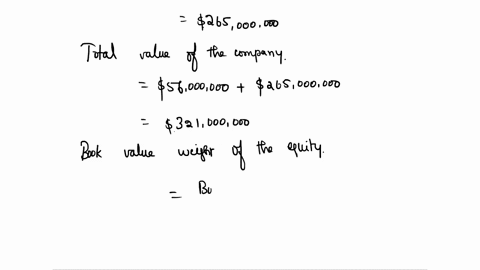 = $265,000,000
Total value of the company.
= $56,000,000 + $265,000,000
= $321,000,000
Book value weight of the equity.
= Bo